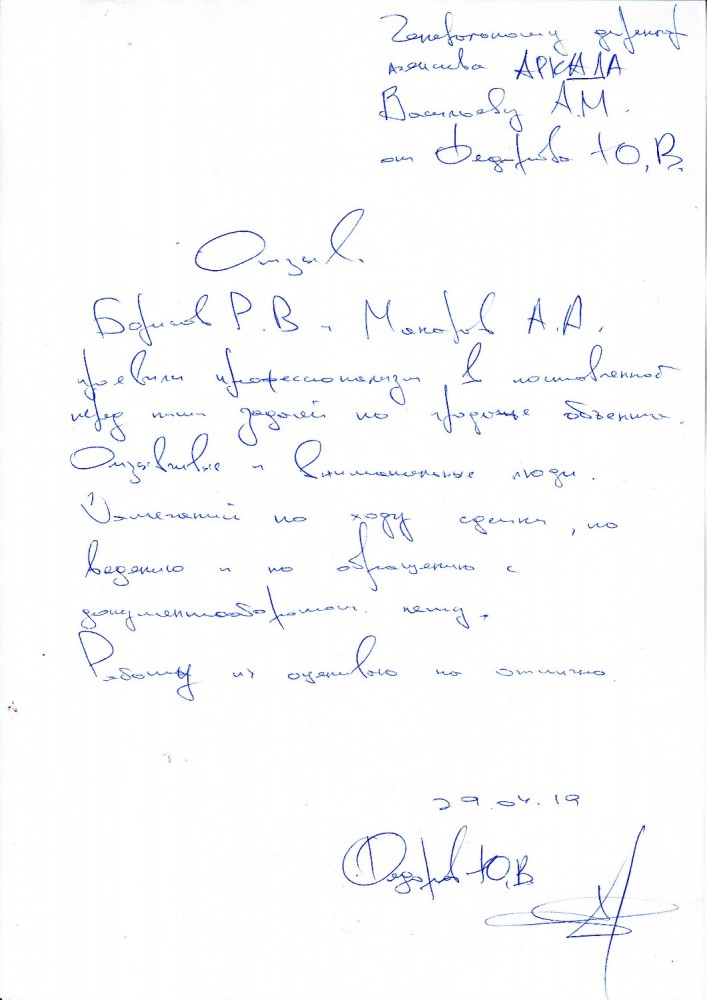 Генеральному директору
агенства АРКАДА
Васильеву А.М.
от Федорова Ю.В.
Отзыв.
Борисов Р.В и Макаров А.А.
проявили профессионализм в поставленной
перед ними задачей по продаже объекта.
Отзывчивые и внимательные люди.
Замечаний по ходу сделки, по
ведению и по обращению с
документооборотом нету.
Работу их оцениваю на отлично.
29.04.19
Федоров Ю.В.